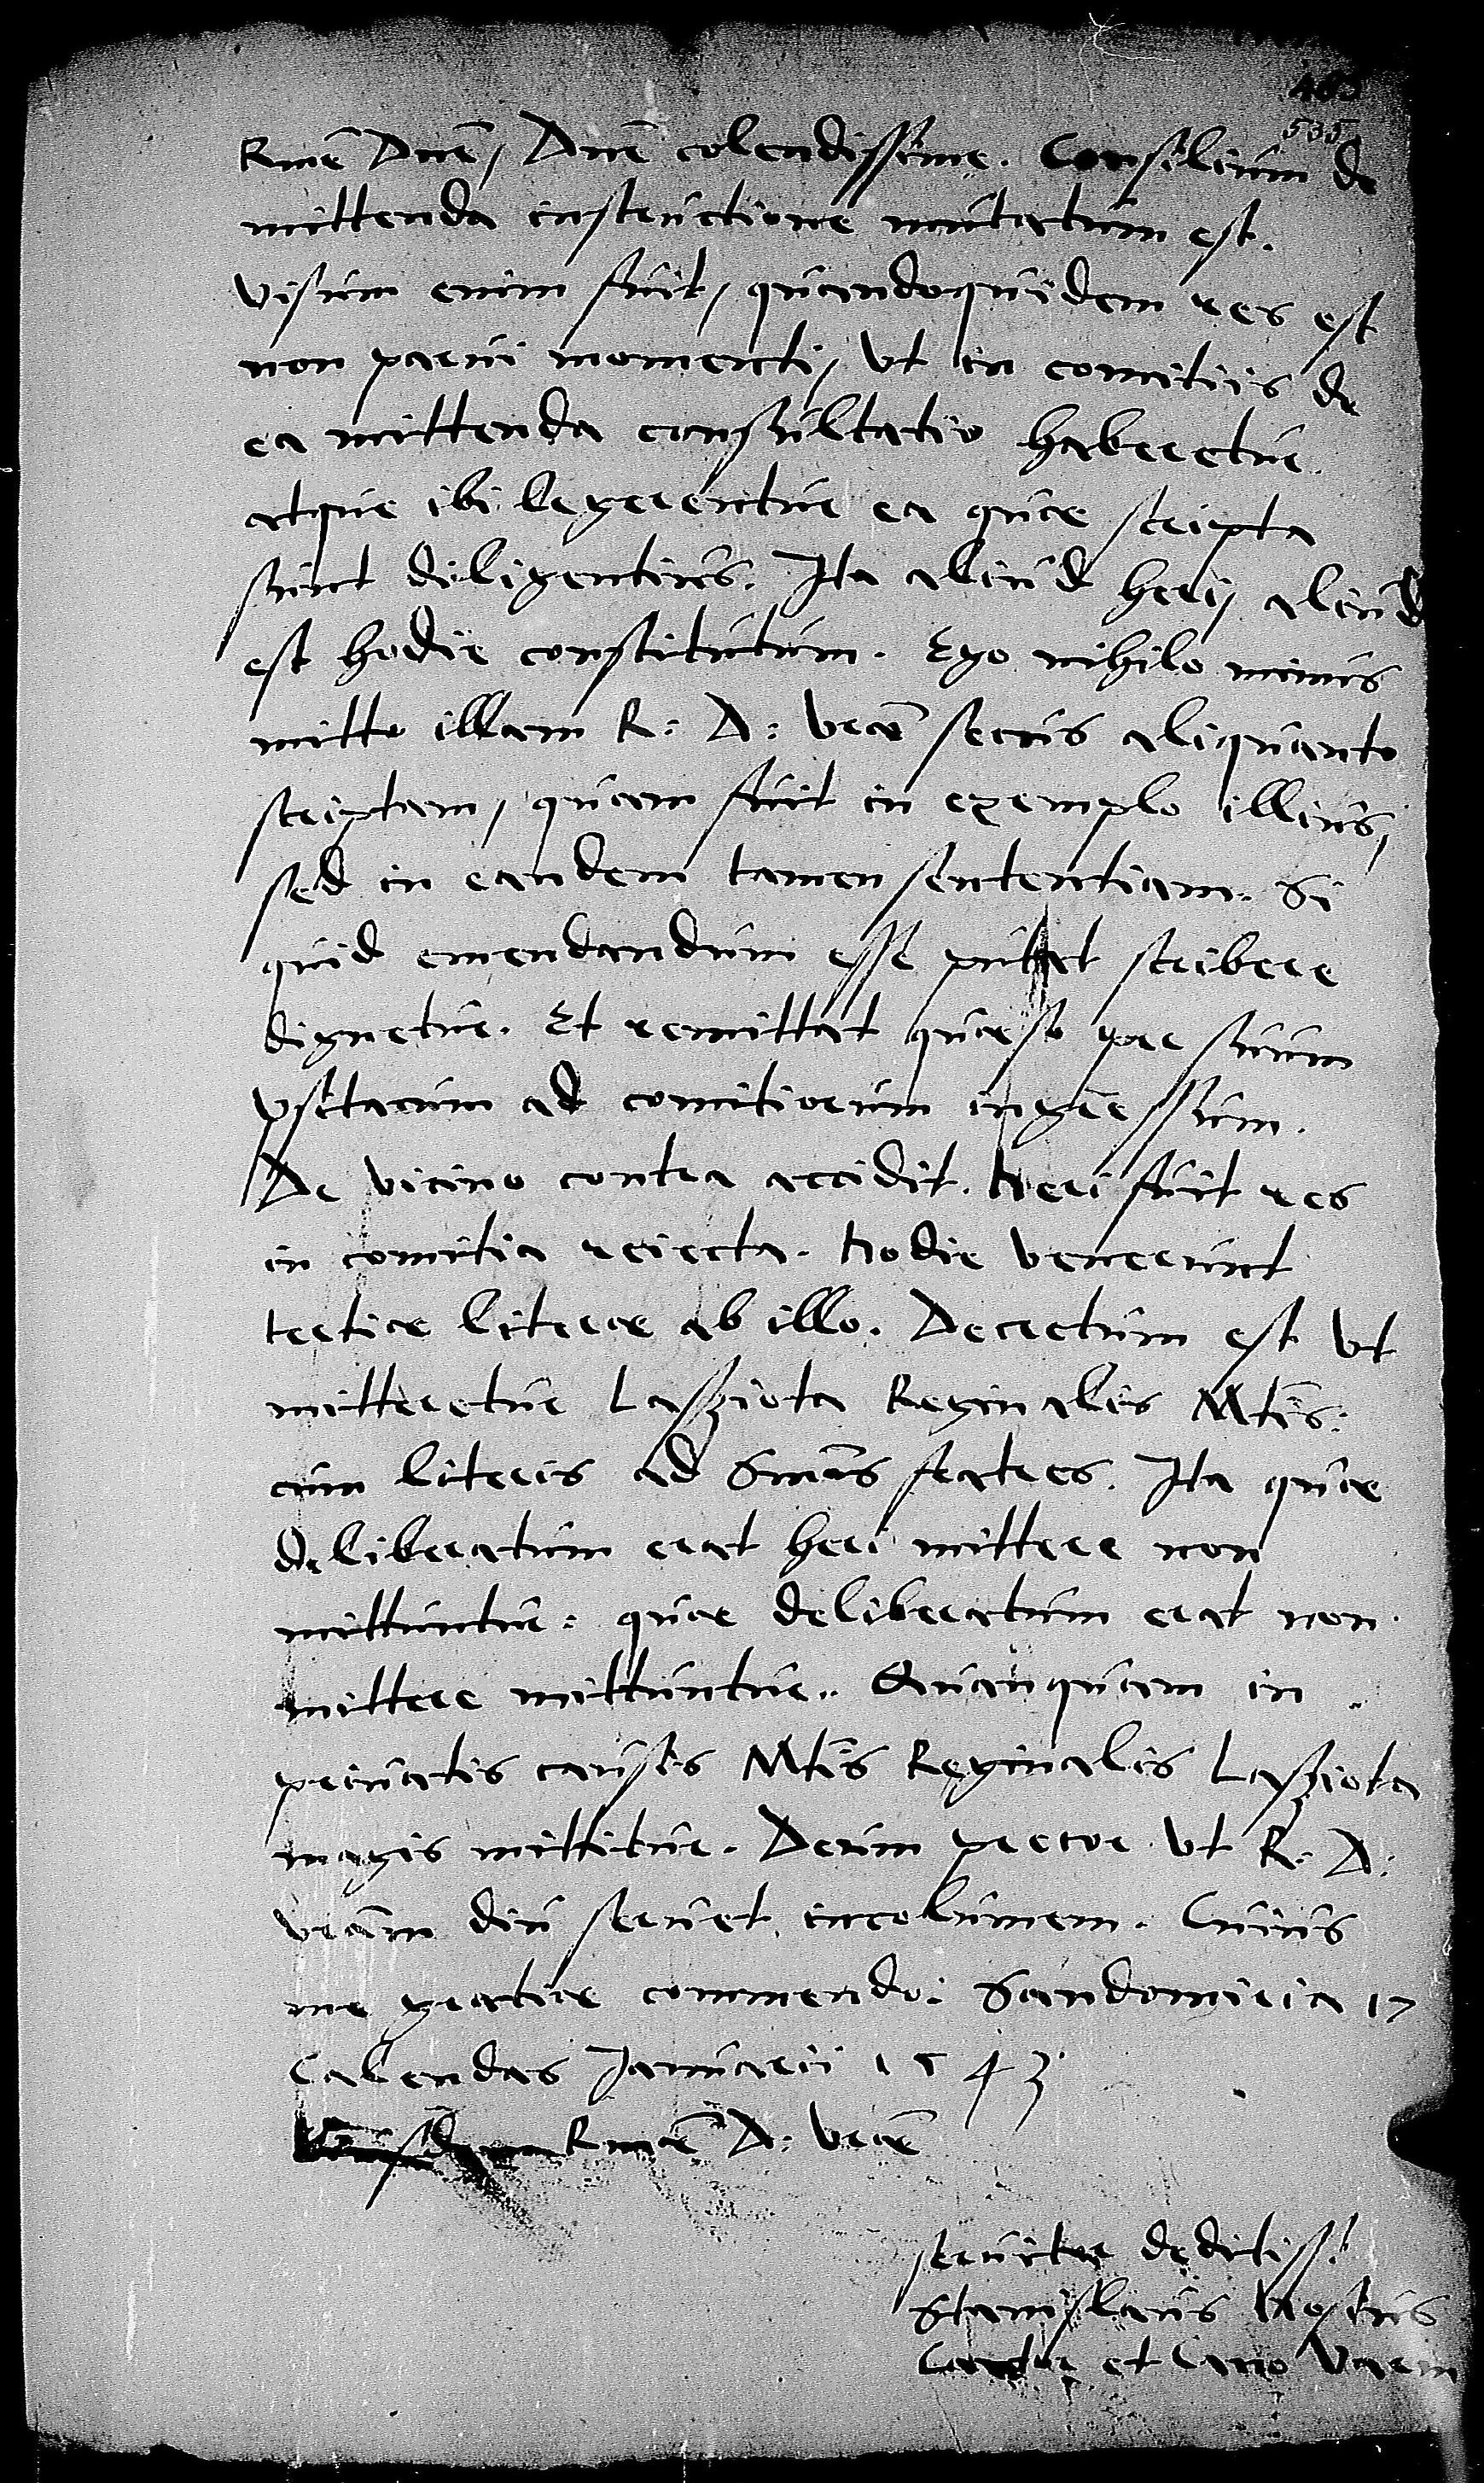 535
Rme Dne, Dne colendissime. Consilium de
mittenda instructione mutatum est.
Visum enim fuit, quandoquidem res est
non parui momenti, Vt in comitiis de
ea mittenda consultatio haberetur.
atque ibi legerentur ea quae scripta
sunt diligentius. Ita aliud heri, aliud
est hodie constitutum. Ego nihilo minus
mitto illam R: D: Vrae secus aliquanto
scriptam, quam fuit in exemplo illius,
sed in eandem tamen sententiam. Si
quid emendandum esse putat scribere
dignetur. Et remittat quaeso per suum
psitacum ad comitiorum ingressum.
De vicino contra accidit. Heri fuit res
in comitia reiecta. Hodie venerunt
tertiae literae ab illo. Decretum est Vt
mitteretur Lasziota Reginalis Mtis:
cum literis ad Smos fratres. Ita quae
deliberatum erat heri mittere non
mittuntur: quae deliberatum erat non
mittere mittuntur. Quanquam in
priuatis causis Mtis Reginalis Lasziota
magis mittitur. Deum precor Vt R: D:
Vram diu seruet incolumem. Cuius
me gratiae commendo: Sandomiria 17
Calendas Januarii 1543
Rmae D: Vrae
seruitor deditiss:
Stanislaus Hosius
Cantor et Cano Varm